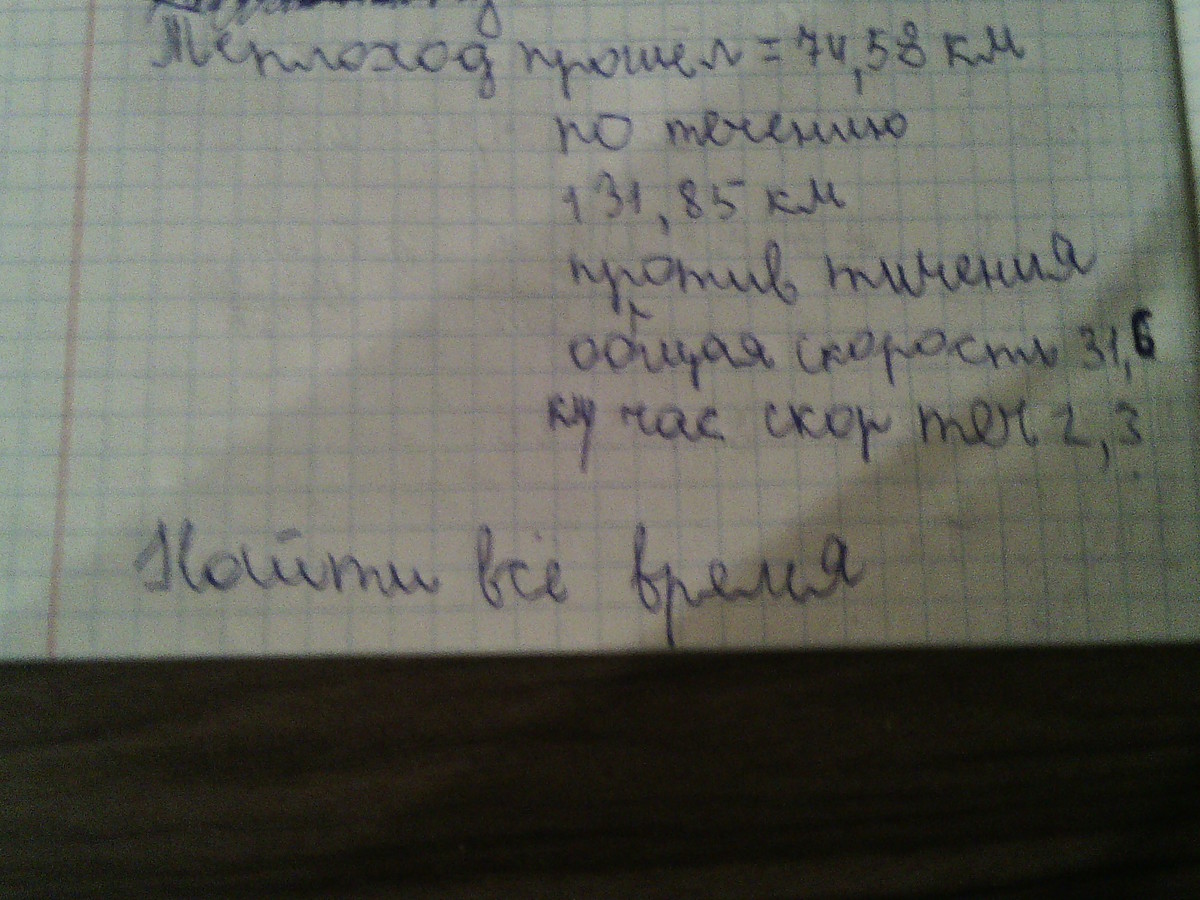 Теплоход прошел = 74,58 км
по течению
131,85 км
против тичения
общая скорость 31,6
км час скор теч 2,3
Найти всё время